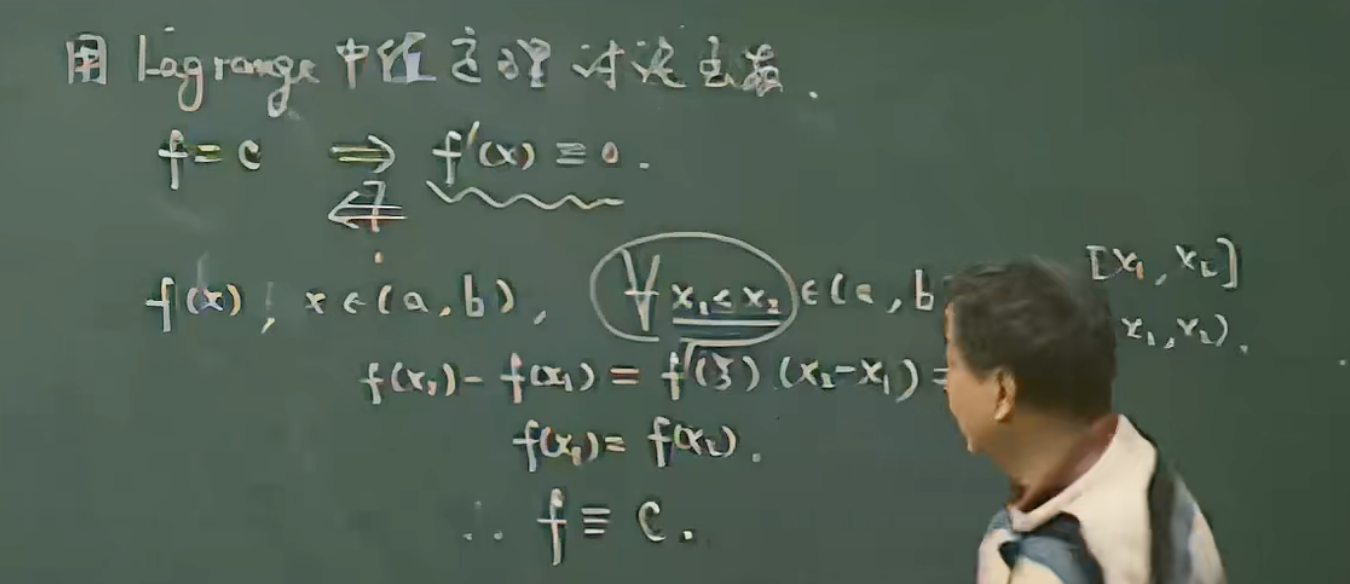 用 Lagrange 中值定理讨论函数.
f = c ⇒ f'(x) ≡ 0.
⇐ ?
f(x), x ∈ (a, b), ∀ x₁ < x₂ ∈ (a, b [x₁, x₂]
x₁, x₂).
f(x₂) - f(x₁) = f'(ξ) (x₂-x₁) =
f(x₁) = f(x₂).
∴ f ≡ c.